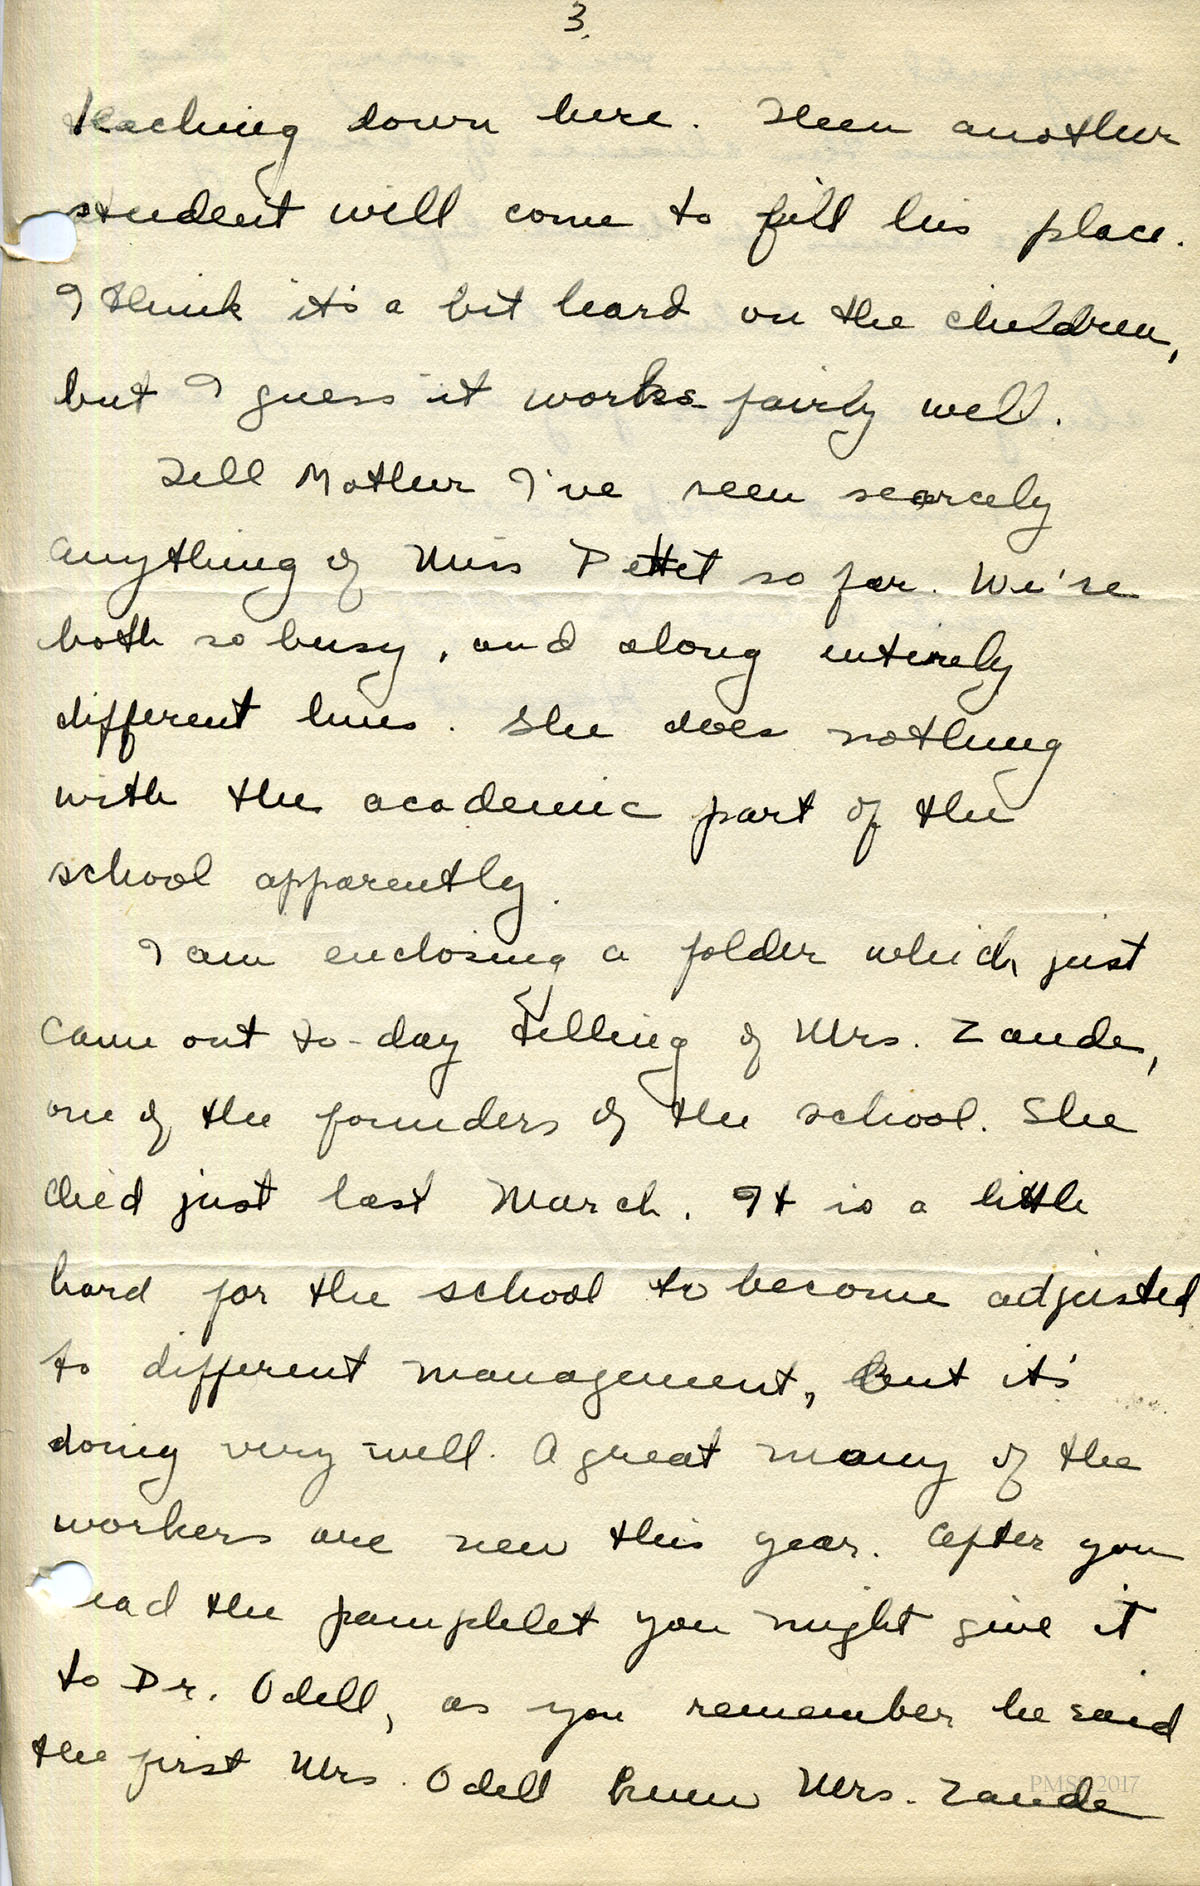 3.
teaching down here. Then another
student will come to fill his place.
I think it's a bit hard on the children,
but I guess it works fairly well.
Tell Mother I've seen scarcely
anything of Miss Pettit so far. We're
both so busy, and along entirely
different lines. She does nothing
with the academic part of the
school apparently.
I am enclosing a folder which just
came out to-day telling of Mrs. Zande,
one of the founders of the school. She
died just last March. It is a little
hard for the school to become adjusted
to different management, but it's
doing very well. A great many of the
workers are new this year. After you
ead the pamphlet you might give it
to Dr. Odell, as you remember he said
the first Mrs. Odell knew Mrs. Zande
PMSS 2017